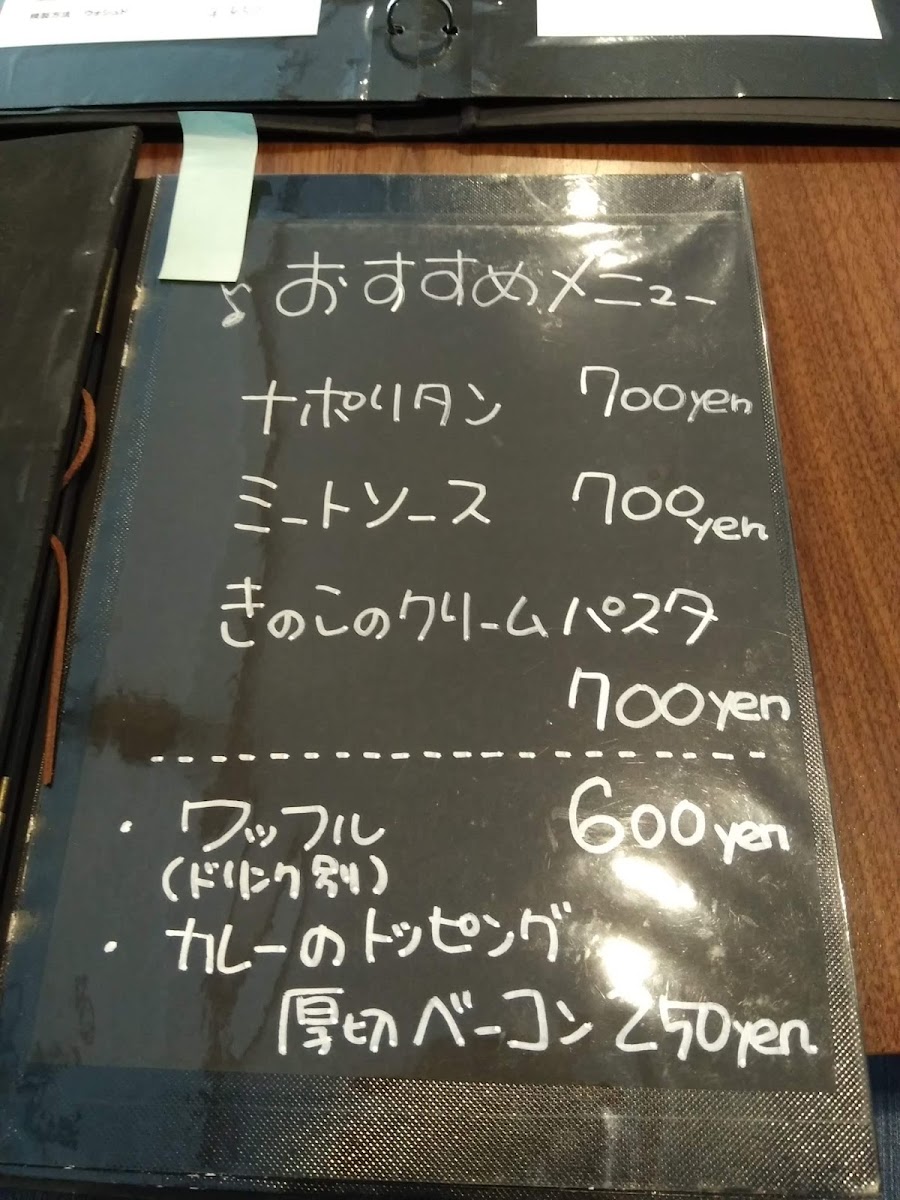 精製方法 ウォシュド
♪おすすめメニュー
ナポリタン 700yen
ミートソース 700yen
きのこのクリームパスタ
700yen
・ワッフル 600yen
(ドリンク別)
・カレーのトッピング
厚切ベーコン 250yen